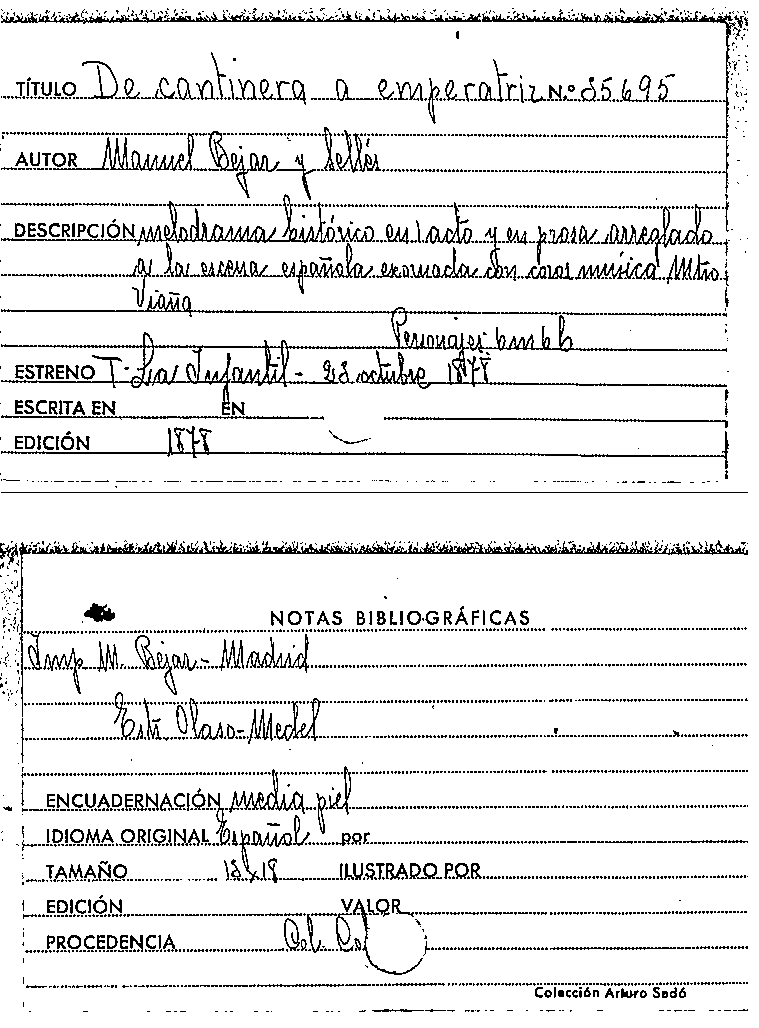 TÍTULO De cantinera a emperatriz N.º 85.695
AUTOR Manuel Bejar y Sellés
DESCRIPCIÓN melodrama histórico en 1 acto y en prosa arreglado
a la escena española exornada con coros música Mtro
Viaña
Personajes 6m 6h
ESTRENO T. La Infantil - 28 octubre 1878
ESCRITA EN EN
EDICIÓN 1878
NOTAS BIBLIOGRÁFICAS
Imp M. Bejar - Madrid
Estr Olaso - Medel
ENCUADERNACIÓN media piel
IDIOMA ORIGINAL Español por
TAMAÑO ILUSTRADO POR
EDICIÓN VALOR
PROCEDENCIA Col.
Colección Arturo Sedó